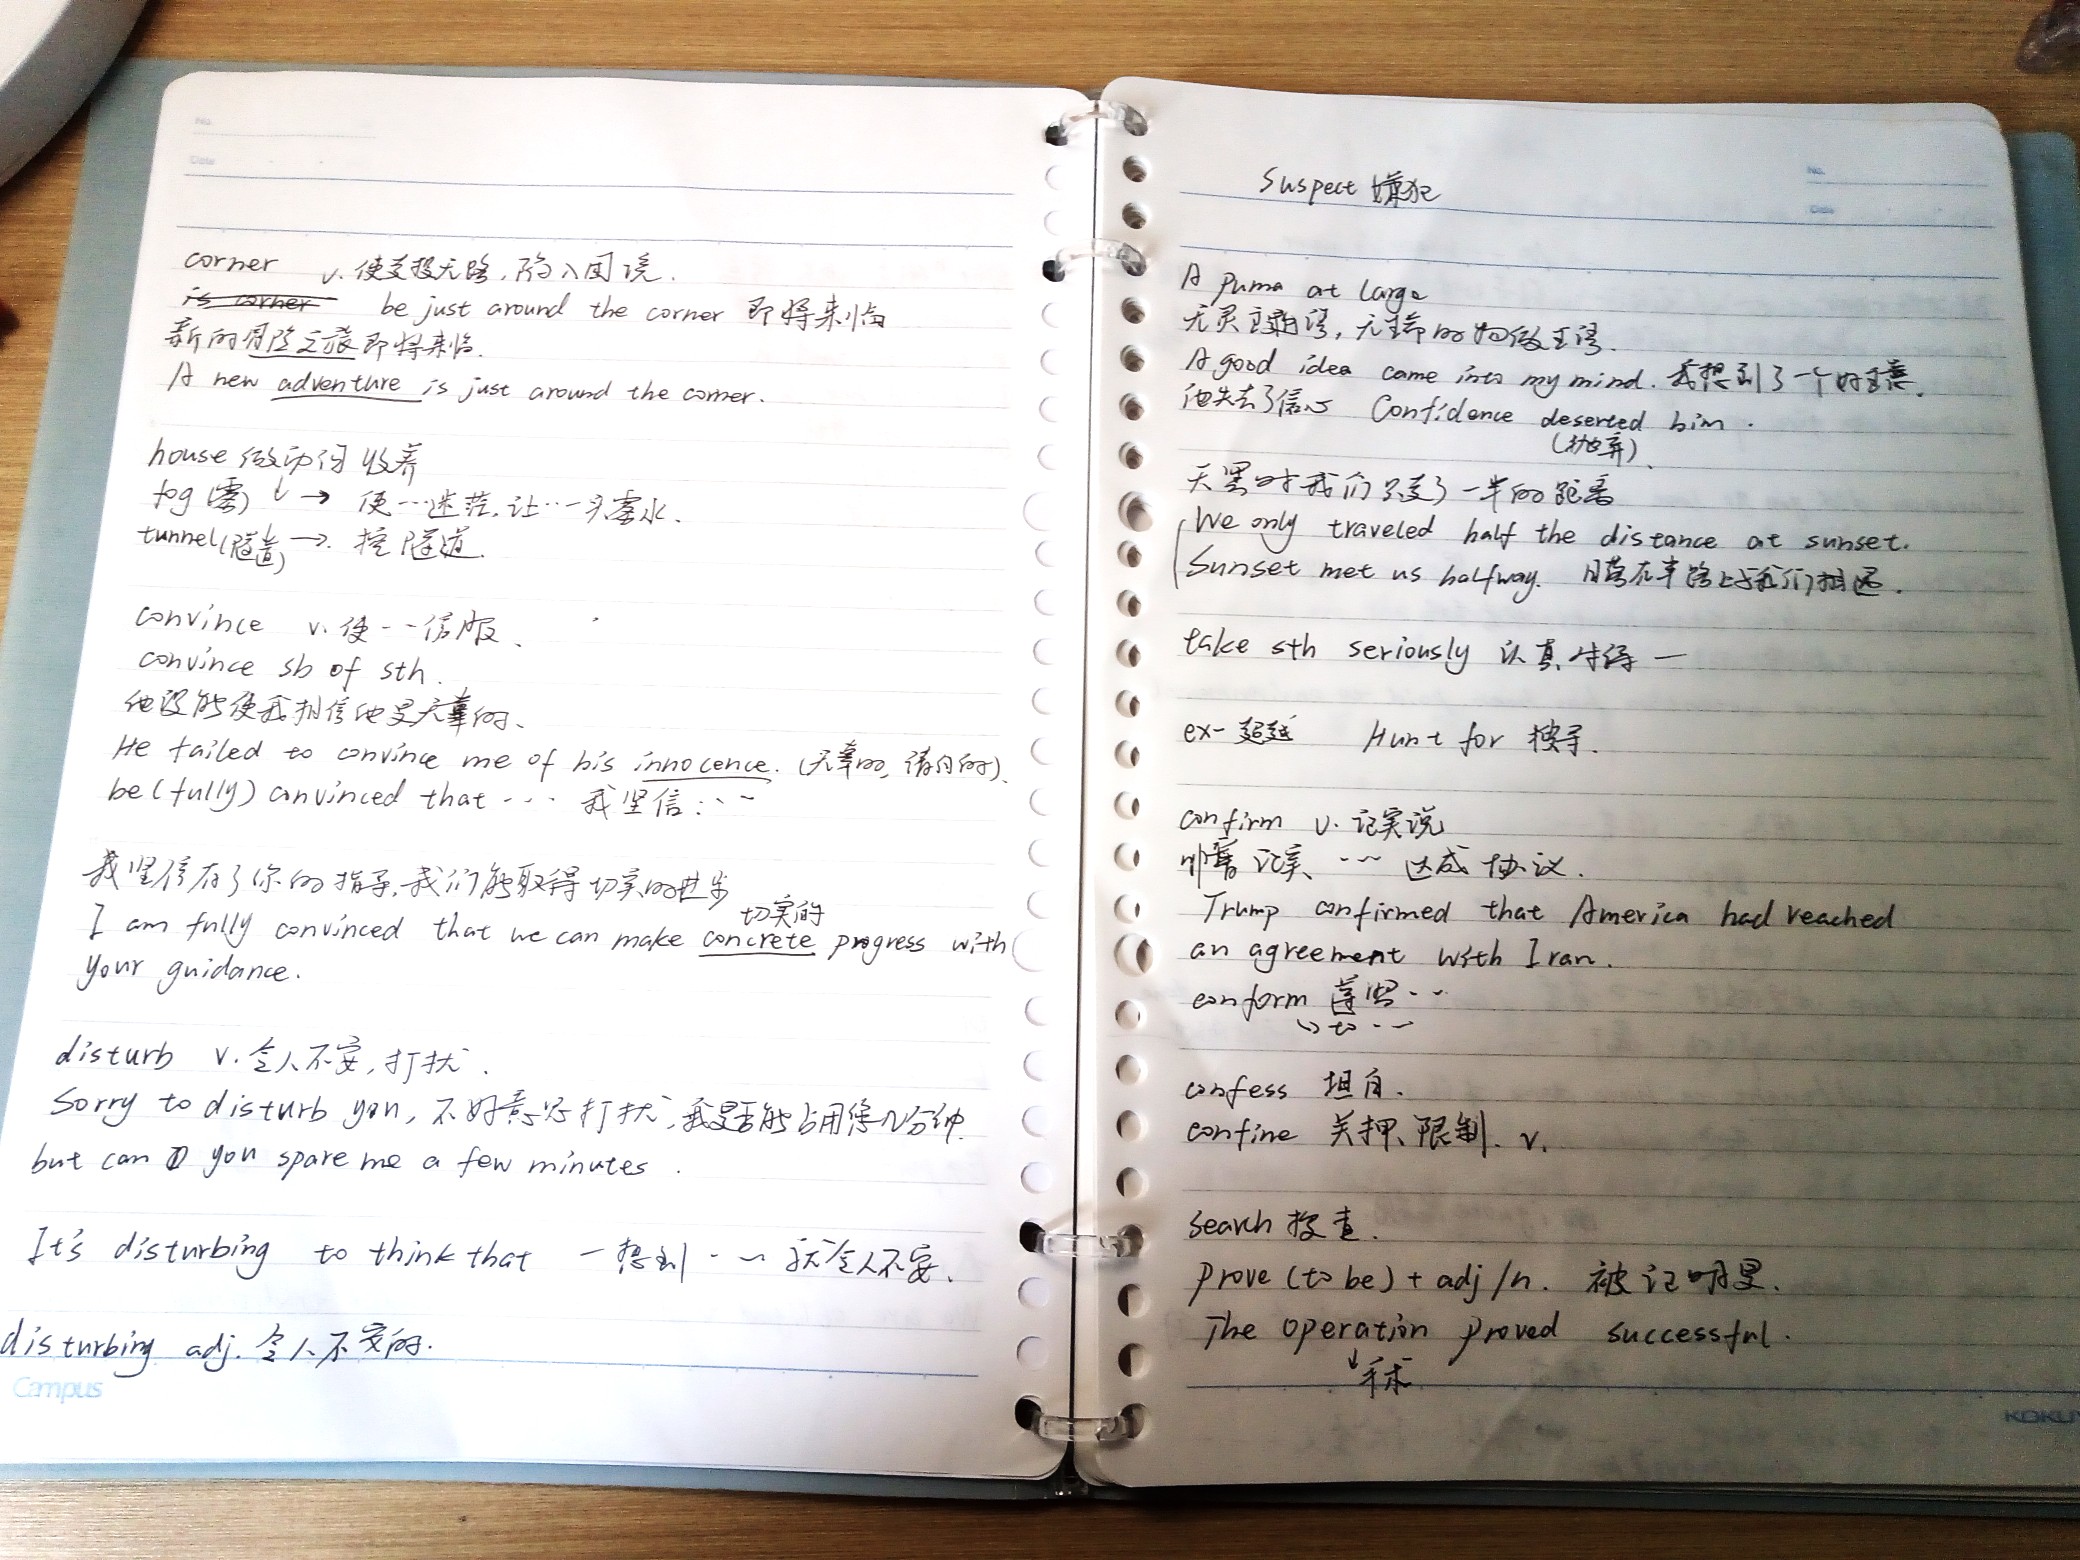 No.
Date
corner v. 使走投无路, 陷入困境.
is corner be just around the corner 即将来临
新的冒险之旅即将来临.
A new adventure is just around the corner.
house 做动词 收养
fog (雾) ↓ → 使…迷茫, 让…一头雾水.
tunnel (隧道) → 挖隧道.
convince v. 使……信服、
convince sb of sth.
他没能使我相信他是无辜的、
He failed to convince me of his innocence. (无辜的, 清白的).
be (fully) convinced that … 我坚信……
我坚信有了你的指导, 我们能取得切实的进步
切实的
I am fully convinced that we can make concrete progress with
your guidance.
disturb v. 令人不安, 打扰.
Sorry to disturb you, 不好意思打扰, 我是否能占用您几分钟.
but can you spare me a few minutes.
It's disturbing to think that 一想到…就令人不安、
disturbing adj. 令人不安的.
Campus
Suspect 嫌犯
No.
Date
A puma at large
无灵主语, 无生命的物做主语.
A good idea came into my mind. 我想到了一个好主意.
他失去了信心 Confidence deserted him.
(抛弃)
天黑时我们只走了一半的距离
We only traveled half the distance at sunset.
Sunset met us halfway. 日落在半路上与我们相遇.
take sth seriously 认真对待—
ex- 超越 Hunt for 搜寻.
confirm v. 证实说
证实、… 达成协议.
Trump confirmed that America had reached
an agreement with Iran.
conform …
↳ to …
confess 坦白.
confine 关押、限制. v.
search 搜查.
prove (to be) + adj/n. 被证明是.
The operation proved successful.
↓手术
KOKUY